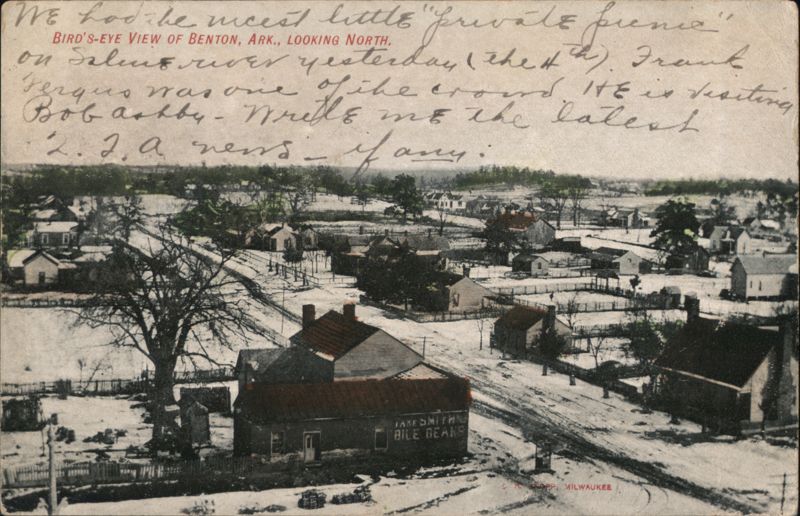 WE had the nicest little "private picnic"
BIRD'S-EYE VIEW OF BENTON, ARK., LOOKING NORTH.
on Saline river yesterday (the 4th) Frank
Fergus was one of the crowd HE is visiting
Bob Ashby - Write me the latest
news - if any.
TAKE SMITH'S
BILE BEANS
MILWAUKEE